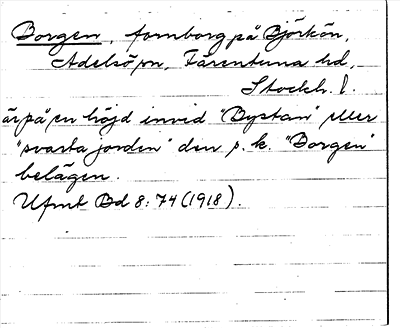 Borgen, fornborg på Björkön,
Adelsö sn, Färentuna hd,
Stockh. l.
är på en höjd invid "Bystan" eller
"svarta jorden" den s. k. "Borgen"
belägen.
Ufmt Bd 8:74 (1918).